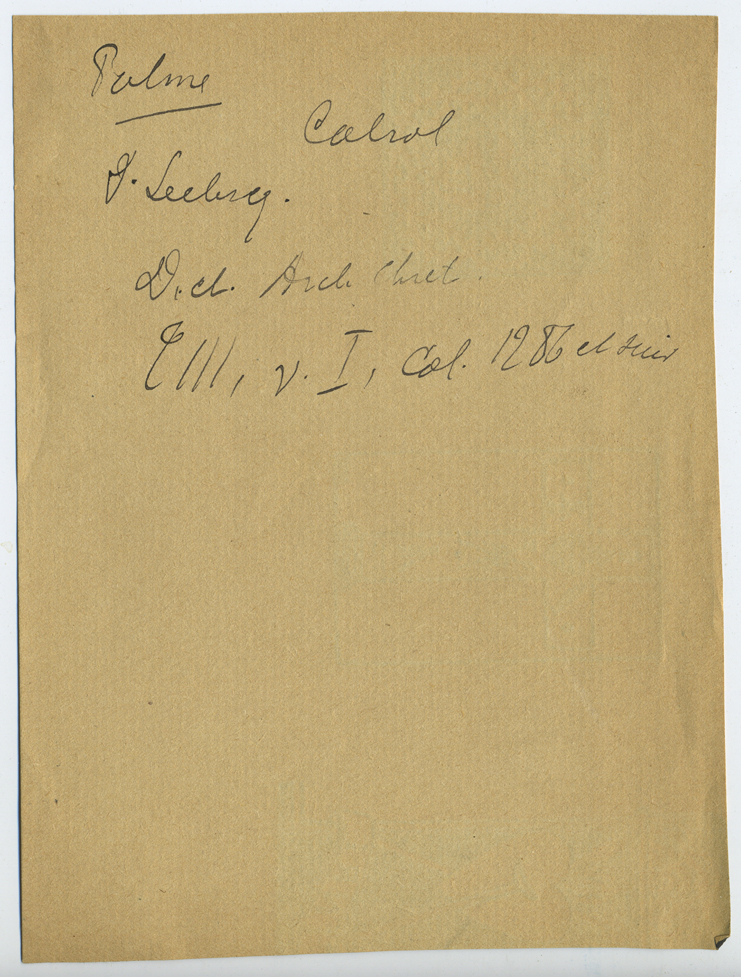 Palme
Cabrol
D. Leclercq.
Dict. Arch Chret.
T III, v. I, Col. 1286 et suiv